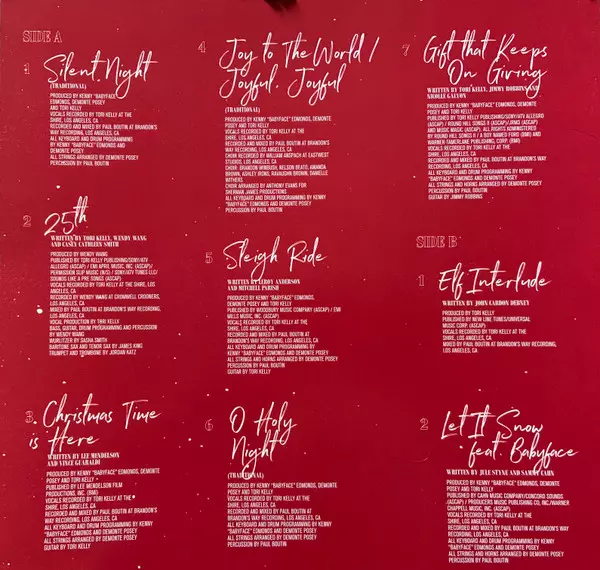 SIDE A
1
Silent Night
(TRADITIONAL)
PRODUCED BY KENNY "BABYFACE"
EDMONDS, DEMONTE POSEY
AND TORI KELLY
VOCALS RECORDED BY TORI KELLY AT THE
SHIRE, LOS ANGELES, CA
RECORDED AND MIXED BY PAUL BOUTIN AT BRANDON'S
WAY RECORDING, LOS ANGELES, CA
ALL KEYBOARD AND DRUM PROGRAMMING
BY KENNY "BABYFACE" EDMONDS AND
DEMONTE POSEY
ALL STRINGS ARRANGED BY DEMONTE POSEY
2
25th
WRITTEN BY TORI KELLY, WENDY WANG
AND CASEY CATHLEEN SMITH
PRODUCED BY WENDY WANG
PUBLISHED BY TORI KELLY PUBLISHING/SONY/ATV
ALLEGRO (ASCAP) / EMI APRIL MUSIC, INC. (ASCAP)/
PERMISSION SLIP MUSIC (N/S) / SONY/ATV TUNES LLC/
SOUNDS LIKE A PRE SONGS (ASCAP)
VOCALS RECORDED BY TORI KELLY AT THE SHIRE, LOS
ANGELES, CA
RECORDED BY WENDY WANG AT CROMWELL CROONERS,
LOS ANGELES, CA
MIXED BY PAUL BOUTIN AT BRANDON'S WAY RECORDING,
LOS ANGELES, CA
VOCAL PRODUCTION BY TORI KELLY
BASS, GUITAR, DRUM PROGRAMMING AND PERCUSSION
BY WENDY WANG
WURLITZER BY SASHA SMITH
BARITONE SAX AND TENOR SAX BY JAMES KING
TRUMPET AND TROMBONE BY JORDAN KATZ
3
Christmas Time
is Here
WRITTEN BY LEE MENDELSON
AND VINCE GUARALDI
PRODUCED BY KENNY "BABYFACE" EDMONDS, DEMONTE
POSEY AND TORI KELLY
PUBLISHED BY LEE MENDELSON FILM
PRODUCTIONS, INC. (BMI)
VOCALS RECORDED BY TORI KELLY AT THE
SHIRE, LOS ANGELES, CA
RECORDED AND MIXED BY PAUL BOUTIN AT BRANDON'S
WAY RECORDING, LOS ANGELES, CA
ALL KEYBOARD AND DRUM PROGRAMMING BY KENNY
"BABYFACE" EDMONDS AND DEMONTE POSEY
ALL STRINGS ARRANGED BY DEMONTE POSEY
GUITAR BY TORI KELLY
4
Joy to The World /
Joyful, Joyful
(TRADITIONAL)
PRODUCED BY KENNY "BABYFACE" EDMONDS, DEMONTE
POSEY AND TORI KELLY
VOCALS RECORDED BY TORI KELLY AT THE
SHIRE, LOS ANGELES, CA
RECORDED AND MIXED BY PAUL BOUTIN AT BRANDON'S
WAY RECORDING, LOS ANGELES, CA
CHOIR RECORDED BY WILLIAM ANSPACH AT EASTWEST
STUDIOS, LOS ANGELES, CA
CHOIR: BRANDON WINBUSH, NELSON BEATO, AMANDA
BROWN, ASHLEY IRONS, RAVAUGHN BROWN, DANIELLE
WITHERS
CHOIR ARRANGED BY ANTHONY EVANS FOR
SHERMAN JAMES PRODUCTIONS
ALL KEYBOARD AND DRUM PROGRAMMING BY KENNY
"BABYFACE" EDMONDS AND DEMONTE POSEY
PERCUSSION BY PAUL BOUTIN
5
Sleigh Ride
WRITTEN BY LEROY ANDERSON
AND MITCHELL PARISH
PRODUCED BY KENNY "BABYFACE" EDMONDS,
DEMONTE POSEY AND TORI KELLY
PUBLISHED BY WOODBURY MUSIC COMPANY (ASCAP) / EMI
MILLS MUSIC, INC. (ASCAP)
VOCALS RECORDED BY TORI KELLY AT THE
SHIRE, LOS ANGELES, CA
RECORDED AND MIXED BY PAUL BOUTIN AT
BRANDON'S WAY RECORDING, LOS ANGELES, CA
ALL KEYBOARD AND DRUM PROGRAMMING BY
KENNY "BABYFACE" EDMONDS AND DEMONTE POSEY
ALL STRINGS AND HORNS ARRANGED BY DEMONTE POSEY
PERCUSSION BY PAUL BOUTIN
GUITAR BY TORI KELLY
6
O Holy
Night
(TRADITIONAL)
PRODUCED BY KENNY "BABYFACE" EDMONDS, DEMONTE
POSEY AND TORI KELLY
VOCALS RECORDED BY TORI KELLY AT THE
SHIRE, LOS ANGELES, CA
RECORDED AND MIXED BY PAUL BOUTIN AT
BRANDON'S WAY RECORDING, LOS ANGELES, CA
ALL KEYBOARD AND DRUM PROGRAMMING BY KENNY
"BABYFACE" EDMONDS AND DEMONTE POSEY
ALL STRINGS ARRANGED BY DEMONTE POSEY
PERCUSSION BY PAUL BOUTIN
7
Gift that Keeps
On Giving
WRITTEN BY TORI KELLY, JIMMY ROBBINS AND
NICOLLE GALYON
PRODUCED BY KENNY "BABYFACE" EDMONDS, DEMONTE
POSEY AND TORI KELLY
PUBLISHED BY TORI KELLY PUBLISHING/SONY/ATV ALLEGRO
(ASCAP) / ROUND HILL SONGS
AND MUSIC MAGIC (ASCAP). ALL RIGHTS ADMINISTERED
BY ROUND HILL SONGS
WARNER-TAMERLANE PUBLISHING, CORP. (BMI)
VOCALS RECORDED BY TORI KELLY AT THE
SHIRE, LOS ANGELES, CA
RECORDED AND MIXED BY PAUL BOUTIN AT BRANDON'S WAY
RECORDING, LOS ANGELES, CA
ALL KEYBOARD AND DRUM PROGRAMMING BY KENNY
"BABYFACE" EDMONDS AND DEMONTE POSEY
ALL STRINGS AND HORNS ARRANGED BY DEMONTE POSEY
PERCUSSION BY PAUL BOUTIN
GUITAR BY JIMMY ROBBINS
SIDE B
1
Elf Interlude
WRITTEN BY JOHN CARDON DEBNEY
PRODUCED BY TORI KELLY
PUBLISHED BY NEW LINE TUNES/UNIVERSAL
MUSIC CORP. (ASCAP)
VOCALS RECORDED BY TORI KELLY AT THE
SHIRE, LOS ANGELES, CA
MIXED BY PAUL BOUTIN AT BRANDON'S WAY RECORDING,
LOS ANGELES, CA
2
Let It Snow
feat. Babyface
WRITTEN BY JULE STYNE AND SAMMY CAHN
PRODUCED BY KENNY "BABYFACE" EDMONDS, DEMONTE
POSEY AND TORI KELLY
PUBLISHED BY CAHN MUSIC COMPANY/CONCORD SOUNDS
(ASCAP) / PRODUCERS MUSIC PUBLISHING CO, INC/WARNER
CHAPPELL MUSIC, INC. (ASCAP)
VOCALS RECORDED BY TORI KELLY AT THE
SHIRE, LOS ANGELES, CA
RECORDED AND MIXED BY PAUL BOUTIN AT BRANDON'S WAY
RECORDING, LOS ANGELES, CA
ALL KEYBOARD AND DRUM PROGRAMMING BY KENNY
"BABYFACE" EDMONDS AND DEMONTE POSEY
ALL STRINGS AND HORNS ARRANGED BY DEMONTE POSEY
PERCUSSION BY PAUL BOUTIN